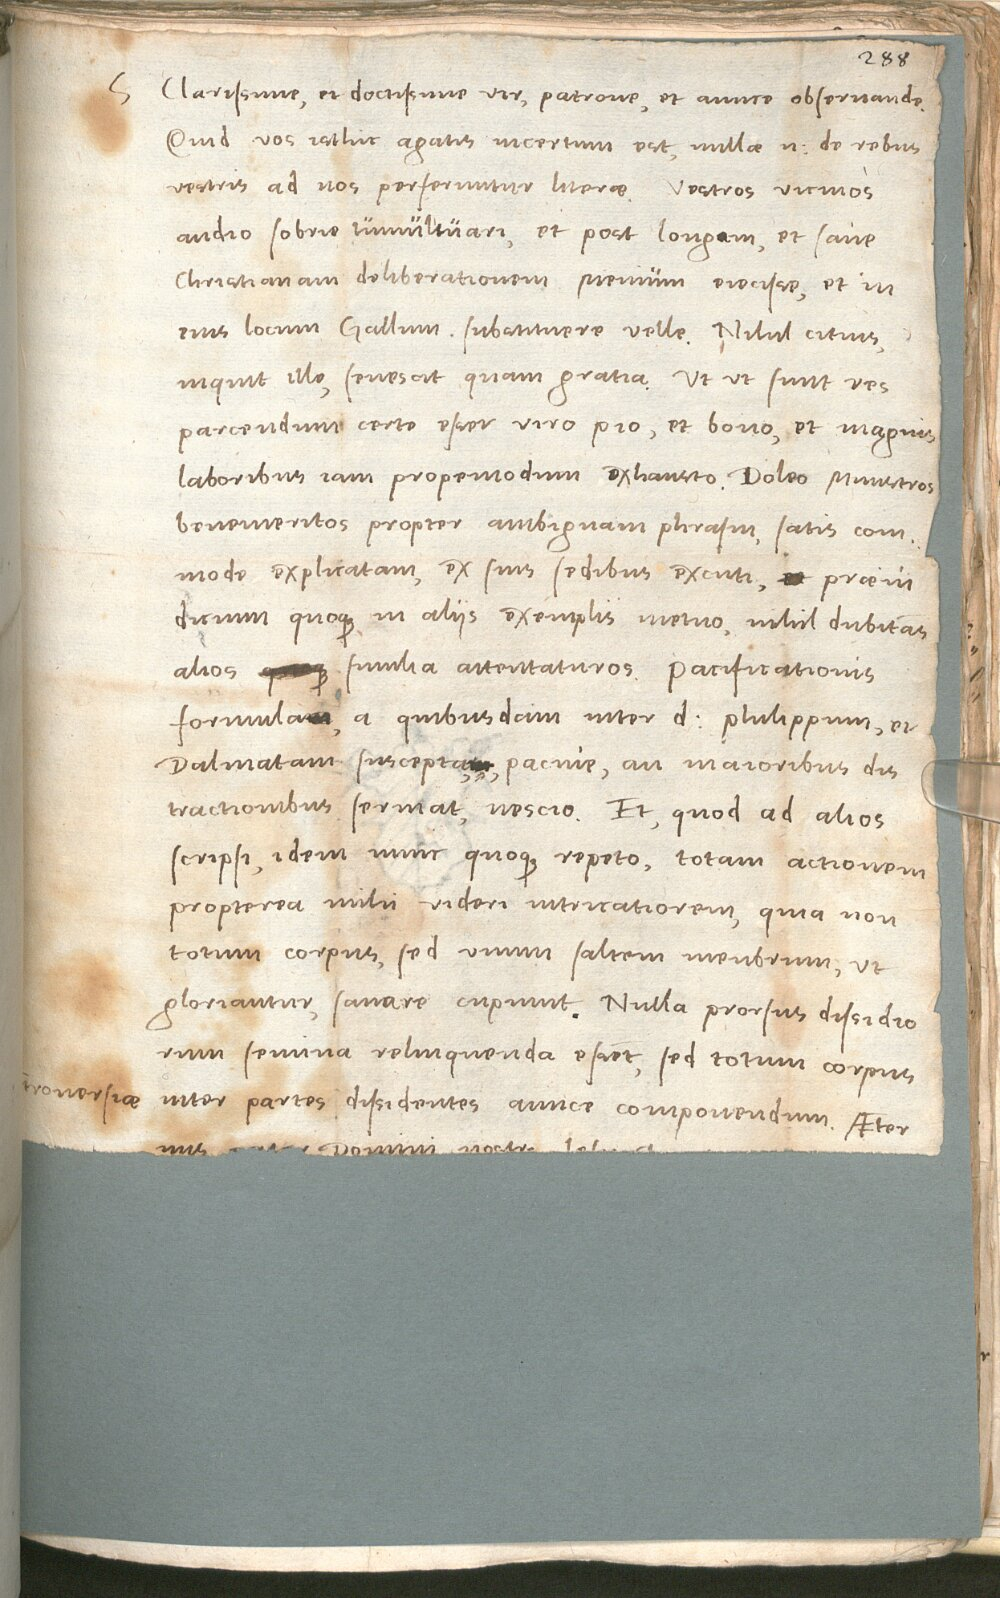 288
S Clarissime, et doctissime vir, patrone, et amice obseruande.
Quid vos isthic agatis incertum est, nullæ n: de rebus
vestris ad nos perferuntur literæ. Vestros vicinos
audio sobrie tumultuari, et post longam, et sane
Christianam deliberationem Menium eiecisse, et in
eius locum Gallum substituere velle. Nihil citius,
inquit ille, senescit quam gratia. Vt vt sunt res
parcendum certe esset viro pio, et bono, et magnis
laboribus iam propemodum exhausto. Doleo Ministros
benemeritos propter ambiguam phrasin, satis com
mode explicatam, ex suis sedibus excuti, præiu
dicium quoq in alijs exemplis metuo, nihil dubitās
alios similia attentaturos. Pacificationis
formulam, a quibusdam inter d: philippum, et
Dalmatam suscepta, pacine, an maioribus dis
tractionibus seruiat, nescio. Et, quod ad alios
scripsi, idem nunc quoq repeto, totam actionem
propterea mihi videri intricatiorem, quia non
totum corpus, sed vnum saltem membrum, vt
gloriantur, sanare cupiunt. Nulla prorsus dissidio
rum semina relinquenda esset, sed totum corpus
trouersiæ inter partes dissidentes amice componendum. Æter
nus Domini nostri